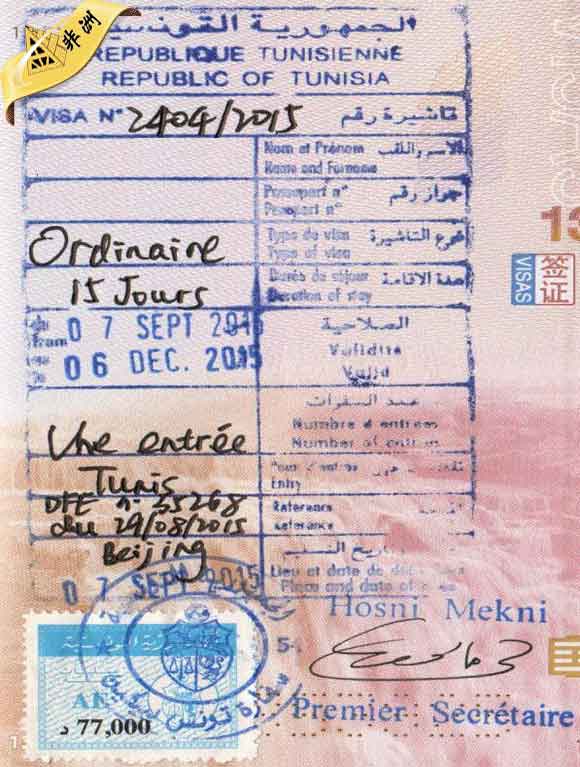 非洲
الجمهورية التونسية
REPUBLIQUE TUNISIENNE
REPUBLIC OF TUNISIA
VISA N° 2404/2015 تاشيرة رقم
Nom et Prénom الاسم واللقب
Name and Forname
Passeport n° جواز رقم
Pasport n°
Ordinaire Type de visa نوع التاشيرة
Type of visa
15 Jours Durée de séjour مدة الاقامة
Duration of stay
VISAS 签证
du from 07 SEPT 2015 الصلاحية
06 DEC. 2015 Validité
Valid
عدد السفرات
Une entrée Nombre d entrées
Number of entries
Tunis
Entry
n° 35268 Reference
du 29/08/2015 Reference
Beijing
تاريخ التسليم
07 SEPT 2015 Lieu et date de
Place and date of
Hosni Mekni
سفارة تونس
77,000 د
Premier Secrétaire